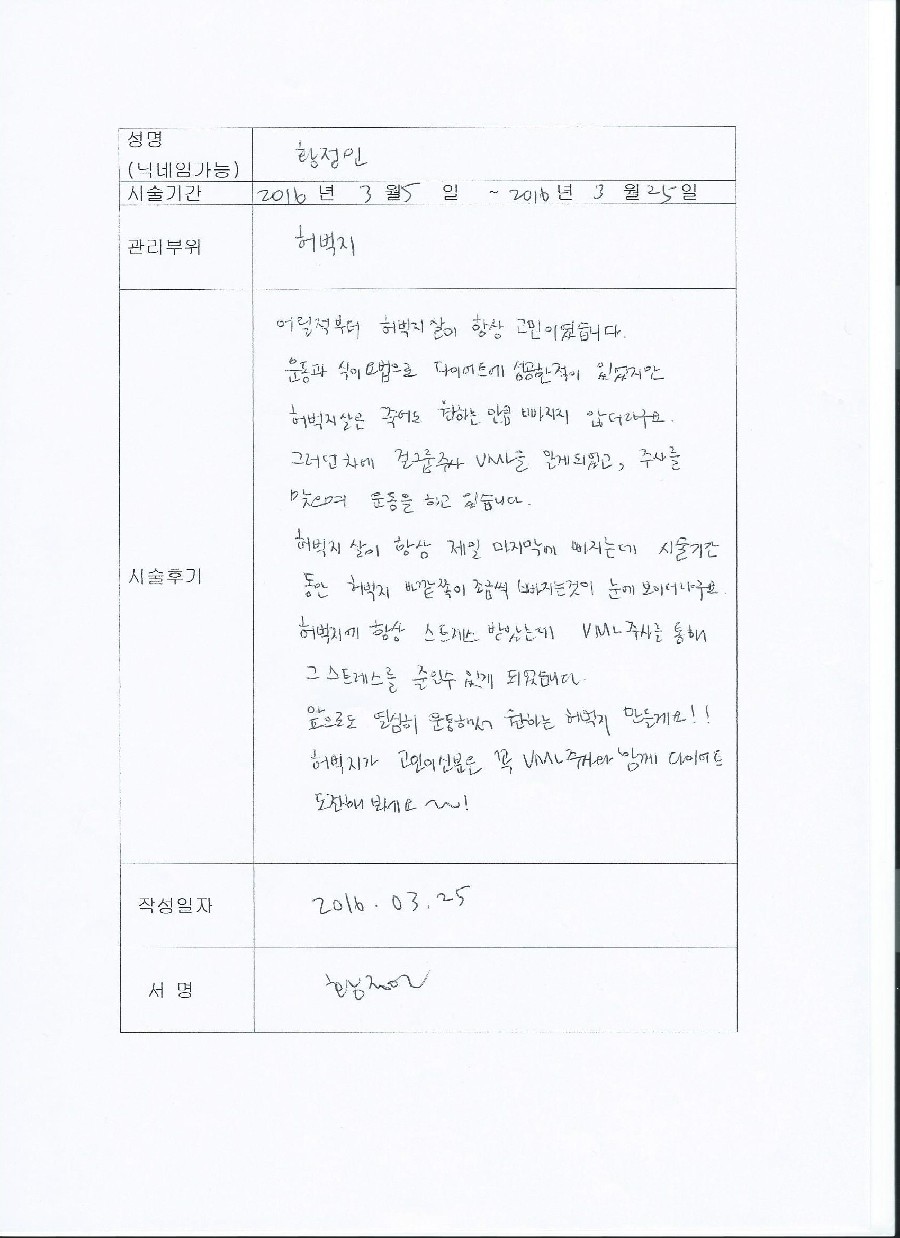 성명
(닉네임가능)
황정인
시술기간
2016 년 3 월5 일 ~ 2016 년 3 월 25 일
관리부위
허벅지
시술후기
어릴적부터 허벅지살이 항상 고민이였습니다.
운동과 식이요법으로 다이어트에 성공한적이 있었지만
허벅지살은 죽어도 원하는 만큼 빠지지 않더라구요.
그러던차에 걸그룹주사 VML을 알게되었고, 주사를
맞으며 운동을 하고 있습니다.
허벅지 살이 항상 제일 마지막에 빠지는데 시술기간
동안 허벅지 바깥쪽이 조금씩 빠지는것이 눈에 보이더라구요.
허벅지에 항상 스트레스 받았는데 VML주사를 통해
그 스트레스를 줄일수 있게 되었습니다.
앞으로도 열심히 운동해서 원하는 허벅지 만들게요!!
허벅지가 고민이신분은 꼭 VML주사와 함께 다이어트
도전해 보세요 ~~!
작성일자
2016. 03. 25
서 명